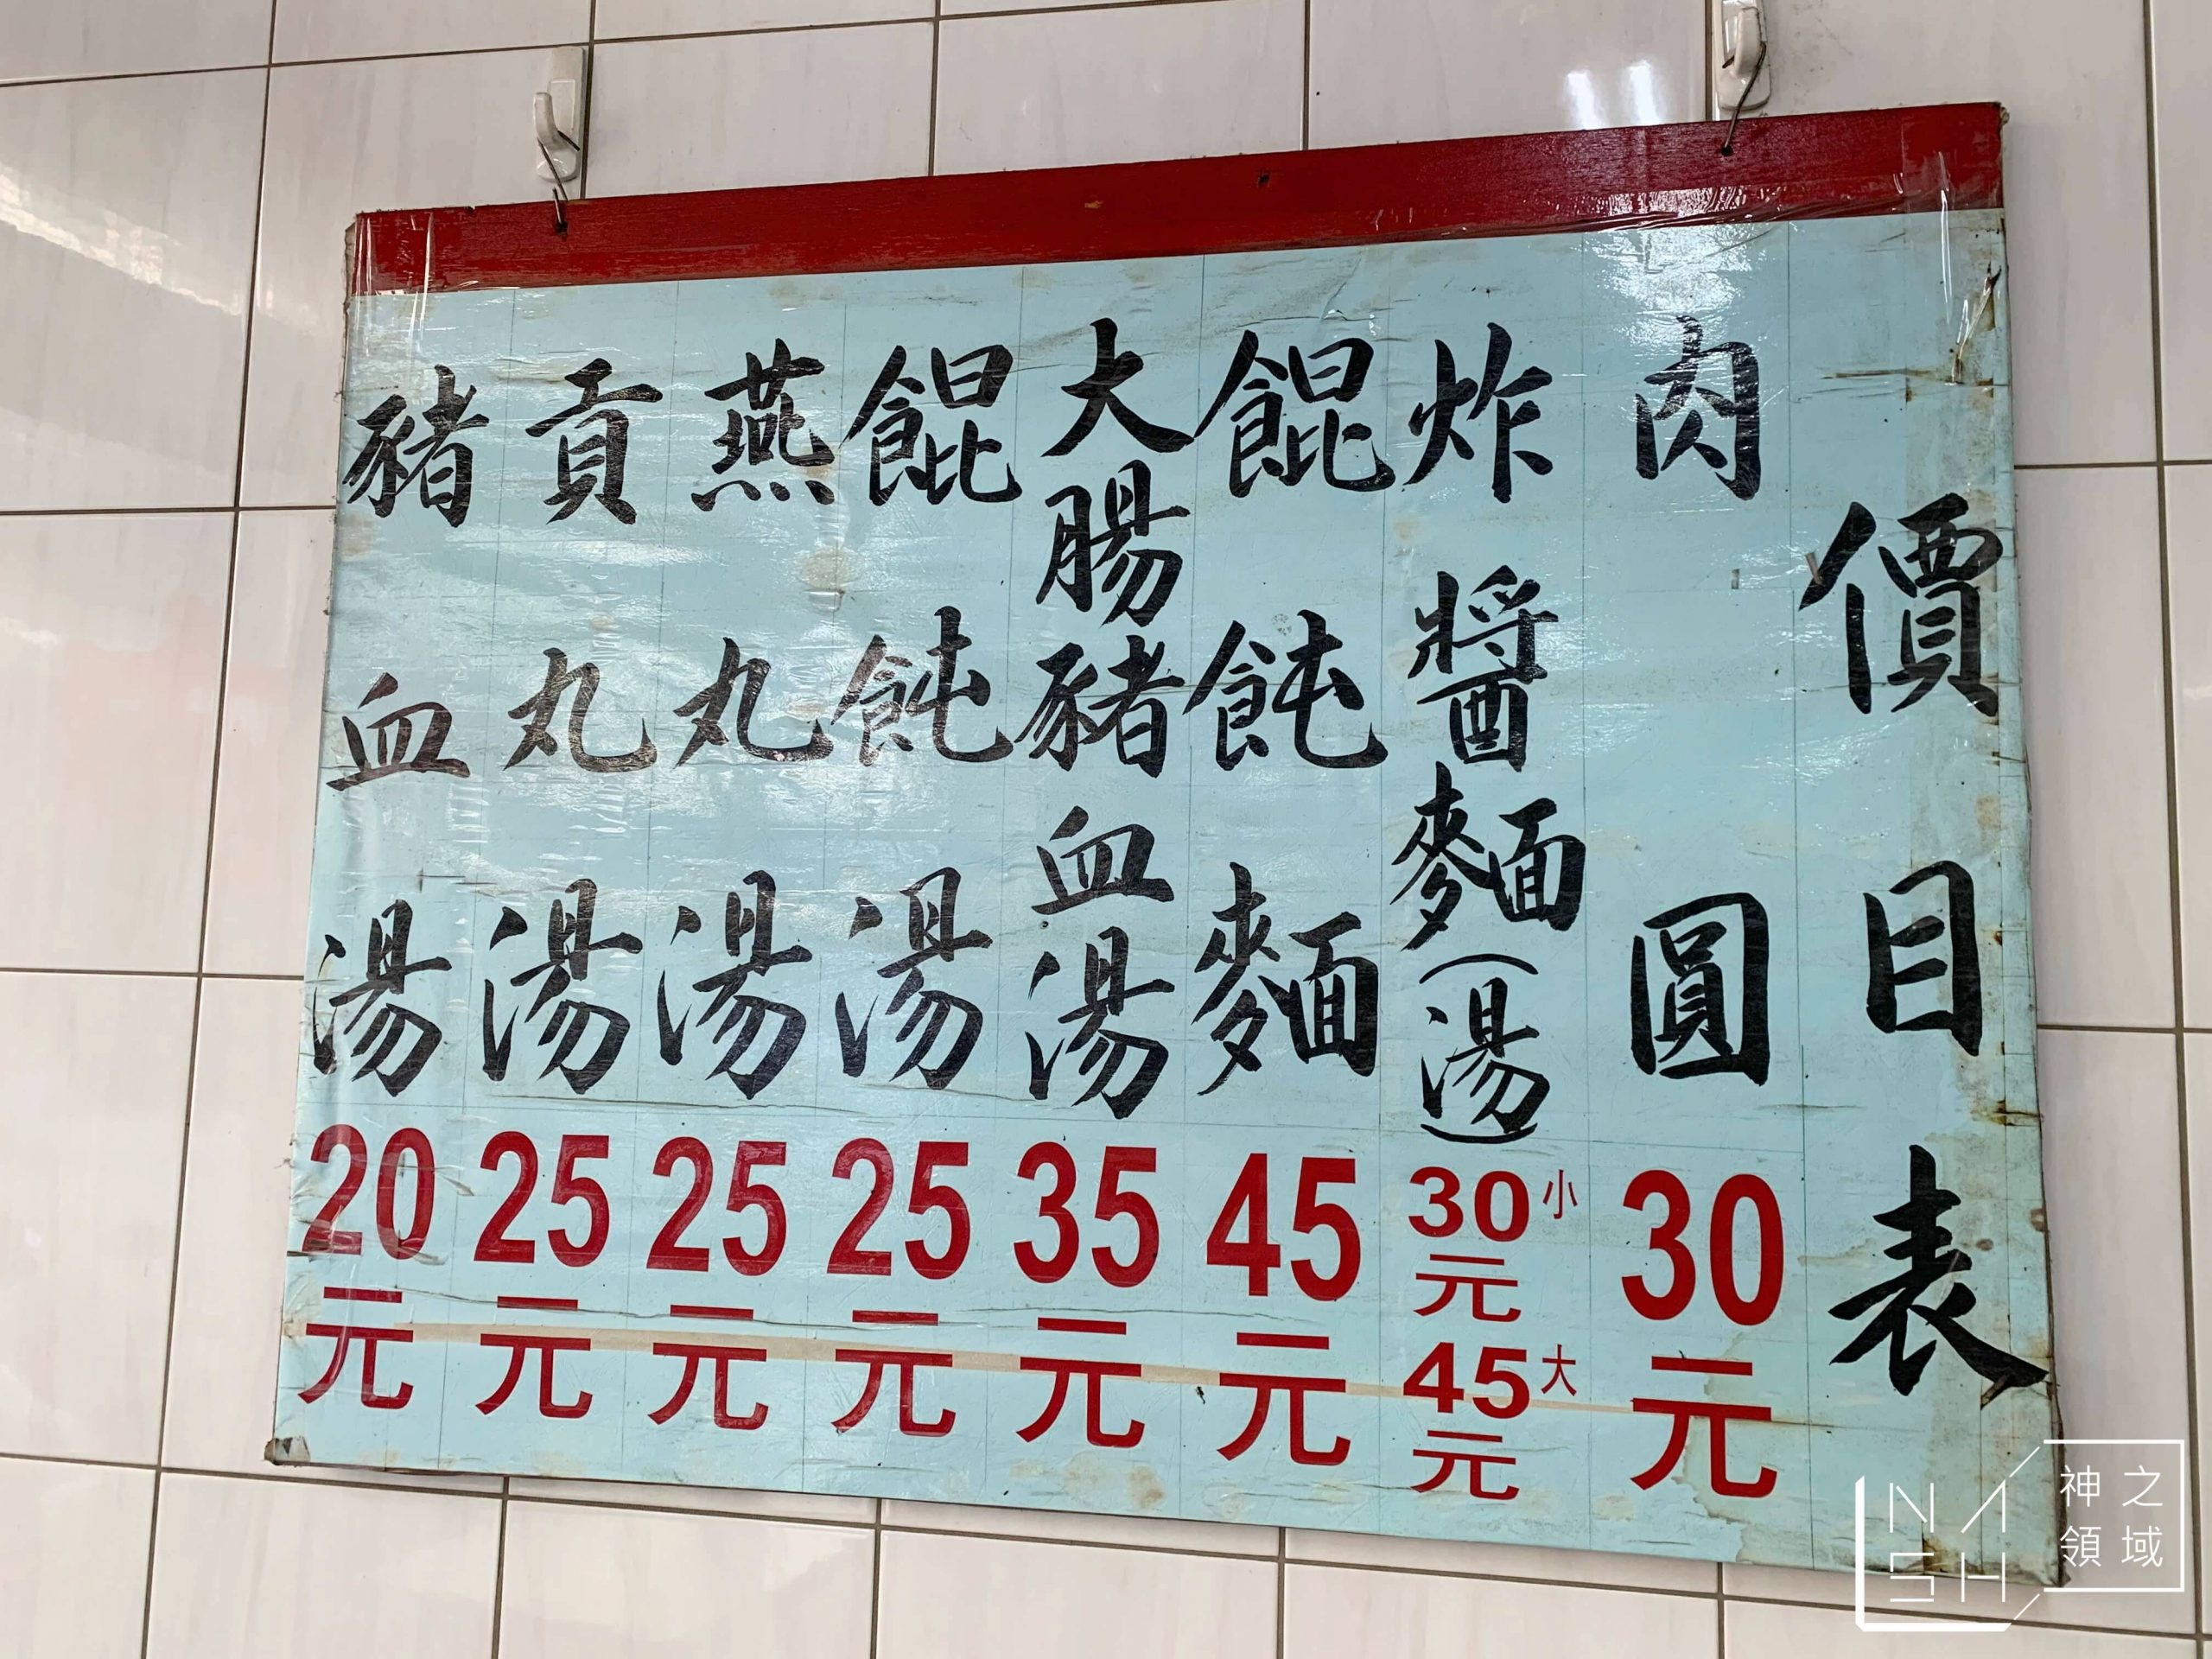 價目表
肉圓 30元
炸醬麵(湯) 30元 小 45元 大
餛飩麵 45元
大腸豬血湯 35元
餛飩湯 25元
燕丸湯 25元
貢丸湯 25元
豬血湯 20元
NASH
神之領域